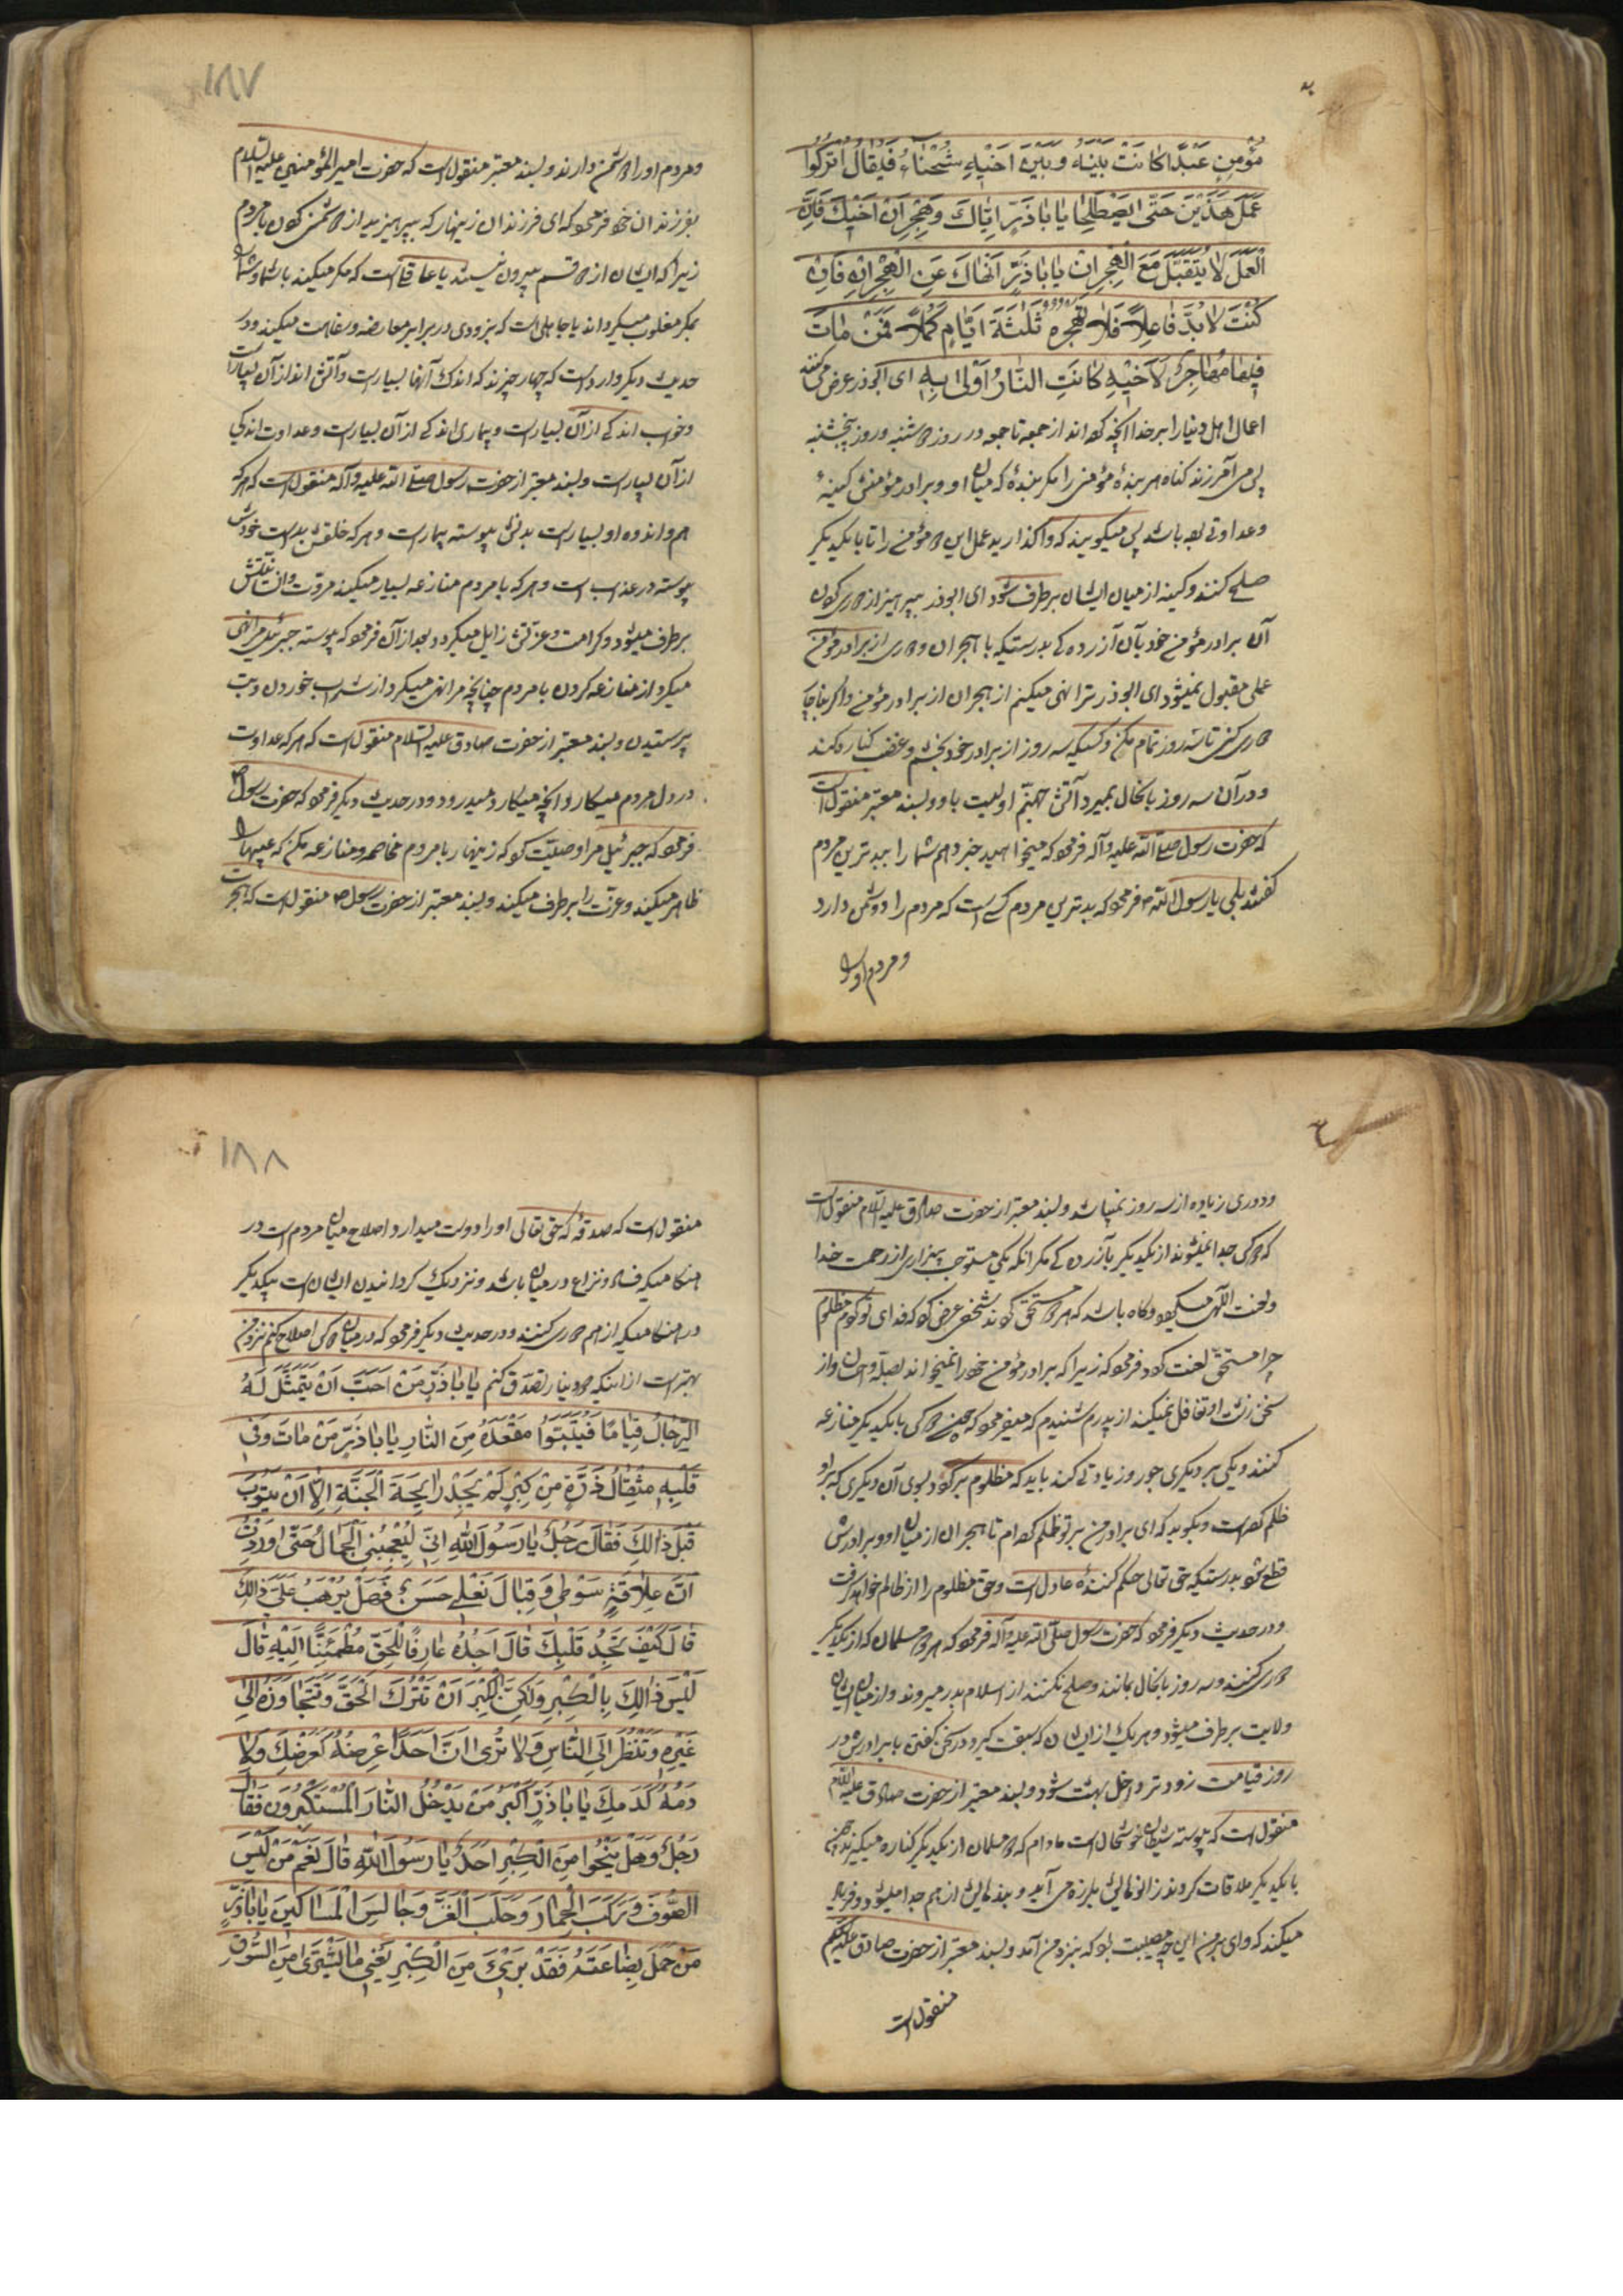 مُؤْمِنٍ عَبْدًا كانَتْ بَيْنَهُ وَبَيْنَ اَخيْهِ شَحْناءُ فَيُقالُ اتْرُكُوا
عَمَلَ هذَيْنَ حَتّى يَصْطَلِحا يا باذَرٍّ اِيّاكَ وَهِجْرانَ اَخيْكَ فَاِنَّ
الْعَمَلَ لا يُتَقَبَّلُ مَعَ الْهِجْرانِ يا باذَرٍّ اَنْهاكَ عَنِ الْهِجْرانِ فَاِنْ
كُنْتَ لا بُدَّ فاعِلاً فَلا تَهْجُرهُ ثَلثَةَ اَيّامٍ كَمَلاً فَمَنْ ماتَ
فيها مُهاجِرًا لاَخيْهِ كانَتِ النّارُ اَوْلى بِهِ ای ابوذر عرض می کنند
اعمال اهل دنیا را بر خدا آنچه کرده‌اند از جمعه تا جمعه در روز دوشنبه و روز پنجشنبه
پس می آمرزند گناه هر بندهٔ مؤمنی را مگر بندهٔ که میان او و برادر مؤمنش کینهٔ
و عداوتی بوده باشد پس میگویند که واگذارید عمل این دو مؤمن را تا با یکدیگر
صلح کنند و کینه از میان ایشان برطرف شود ای ابوذر بپرهیز از دوری کردن
آن برادر مؤمن خود بآن آزرده کی بدرستیکه با هجران و دوری از برادر مؤمن
عملی مقبول نمیشود ای ابوذر ترا نهی میکنم از هجران از برادر مؤمن و اگر بناچار
دوری کنی تا سه روز تمام مکن و کسیکه سه روز از برادر خود بخشم و غضب کناره کند
و در آن سه روز بانحال بمیرد آتش جهنّم اولیست باو و بسند معتبر منقول است
که حضرت رسول صلی الله علیه وآله فرمود که میخواهید خبر دهم شما را ببدترین مردم
گفتند بلی یا رسول الله فرمود که بدترین مردم کسی است که مردم را دوشمن دارد
و مردم او را
۱۸۷
و مردم او را دشمن دارند و بسند معتبر منقول است که حضرت امیر المؤمنین علیه السلام
بفرزندان خود فرمود که ای فرزندان زینهار که بپرهیزید از دشمنی کردن با مردم
زیرا که ایشان از دو قسم بیرون نیستند یا عاقلی است که مکر میکند با شما و شما را
بمکر مغلوب میگرداند یا جاهلی است که بزودی در برابر معارضه و سفاهت میکند و در
حدیث دیگر وارد است که چهار چیزند که اندک آنها بسیار است و آتش اندک از آن بسیار است
و خواب اندکی از آن بسیار است و بیماری اندکی از آن بسیار است و عداوت اندکی
از آن بسیار است و بسند معتبر از حضرت رسول صلی الله علیه وآله منقول است که هر که
هم و اندوه او بسیار است بدنش پیوسته بیمار است و هر که خلقش بد است خودش
پیوسته در عذاب است و هر که با مردم منازعه بسیار میکند مروّت و انسانیتش
برطرف میشود و کرامت و عزّتش زایل میگردد و بعد از آن فرمود که پیوسته جبرئیل مرا نهی
میکرد از منازعه کردن با مردم چنانچه مرا نهی میکرد از شراب خوردن و بت
پرستیدن و بسند معتبر از حضرت صادق علیه السّلام منقول است که هر که عداوت
در دل مردم میکارد آنچه میکارد میدرود و در حدیث دیگر فرمود که حضرت رسول ص
فرمود که جبرئیل مرا وصیّت کرد که زینهار با مردم مخاصمه و منازعه مکن که عیبها را
ظاهر میکند و عزّت را برطرف میکند و بسند معتبر از حضرت رسول ص منقول است که هجرت
و دوری زیاده از سه روز نمیباشد و بسند معتبر از حضرت صادق علیه السّلام منقول است
که دو کس جدا نمیشوند از یکدیگر بآزرده کی مگر آنکه یکی مستوجب بیزاری از رحمت خدا
و لعنت الهی میگردد و گاه باشد که هر دو مستحق گردند شخصی عرض کرد که فدای تو گردم مظلوم
چرا مستحقّ لعنت گردد فرمود که زیرا که برادر مؤمن خود را نمیخواند بصله و احسان و از
سخن زشت او تغافل نمیکند از پدرم شنیدم که میفرمود که چون دو کس با یکدیگر منازعه
کنند و یکی بر دیگری جور و زیادتی کند باید که مظلوم برگردد بسوی آن دیگری که بر او
ظلم کرده است و بگوید که ای برادر من بر تو ظلم کرده‌ام تا هجران از میان او و برادرش
قطع شود بدرستیکه حق تعالی حکم کنندهٔ عادل است و حق مظلوم را از ظالم خواهد گرفت
و در حدیث دیگر فرمود که حضرت رسول صلّی الله علیه وآله فرمود که هر دو مسلمان که از یکدیگر
دوری کنند و سه روز بانحال بمانند و صلح نکنند از اسلام بدر میروند و از میان ایشان
ولایت برطرف میشود و هر یک از ایشان که سبقت گیرد در سخن گفتن با برادرش در
روز قیامت زودتر داخل بهشت شود و بسند معتبر از حضرت صادق علیه السلام
منقول است که پیوسته شیطان خوشحال است مادام که دو مسلمان از یکدیگر کناره میکنند و چون
با یکدیگر ملاقات کردند زانوهایش بلرزه می آید و بندهایش از هم جدا میشود و فریاد
میکند که وای بر من این چه مصیبت بود که بنزد من آمد و بسند معتبر از حضرت صادق علیه السلام
منقول است
۱۸۸
منقول است که صدقهٔ که حق تعالی او را دوست میدارد اصلاح میان مردم است در
هنگامیکه فساد و نزاع در میان باشد و نزدیک گردانیدن ایشان است بیکدیگر
در هنگامیکه از هم دوری کنند و در حدیث دیگر فرمود که در میان دو کس اصلاح کنم نزد من
بهتر است از اینکه دو دینار تصدّق کنم يا باذَرٍّ مَنْ اَحَبَّ اَنْ يَتَمَثَّلَ لَهُ
الرِّجالُ قِيامًا فَلْيَتَبَوَّأْ مَقْعَدَهُ مِنَ النّارِ يا باذَرٍّ مَنْ ماتَ وَفي
قَلْبِهِ مِثْقالُ ذَرَّةٍ مِنْ كِبْرٍ لَمْ يَجِدْ رايِحَةَ الْجَنَّةِ اِلاّ اَنْ يَتُوبَ
قَبْلَ ذالِكَ فَقالَ رَجُلٌ يا رَسُولَ اللهِ اِنّي لَيُعْجِبُني الْجَمالُ حَتّى اوَدِدْتُ
اَنَّ عِلاقَةَ سَوْطي وَقِبالَ نَعْلي حَسَنٌ فَهَلْ يُرْهَبُ عَلَيَّ ذالِكَ
قالَ كَيْفَ تَجِدُ قَلْبَكَ قالَ اَجِدُهُ عارِفًا لِلْحَقِّ مُطْمَئِنًّا اِلَيْهِ قالَ
لَيْسَ ذالِكَ بِالْكِبْرِ وَلكِنَّ الْكِبْرَ اَنْ تَتْرُكَ الْحَقَّ وَتَتَجاوَزَهُ اِلى
غَيْرِهِ وَتَنْظُرَ اِلَى النّاسِ وَلا تَرى اَنَّ اَحَدًا عِرْضُهُ كَعِرْضِكَ وَلا
دَمُهُ كَدَمِكَ يا باذَرٍّ اَكْبَرُ مَنْ يَدْخُلُ النّارَ الْمُسْتَكْبِرُونَ فَقالَ
رَجُلٌ وَهَلْ يَنْجُوا مِنَ الْكِبْرِ اَحَدٌ يا رَسُولَ اللهِ قالَ نَعَمْ مَنْ لَبِسَ
الصُّوفَ وَرَكَبَ الْحِمارَ وَحَلَبَ الْعَنْزَ وَجالَسَ الْمَساكينَ يا باذَرٍّ
مَنْ حَمَلَ بِضاعَتَهُ فَقَدْ بَرِئَ مِنَ الْكِبْرِ يَعْني ما يَشْتَري مِنَ السُّوقِ